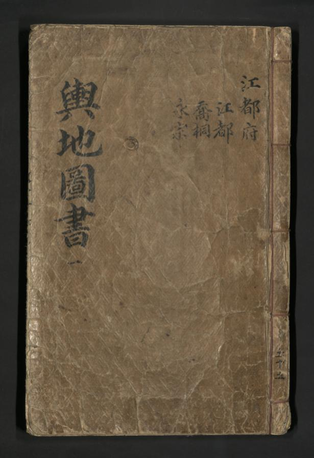 江都府
江都
喬桐
永宗
輿地圖書 一